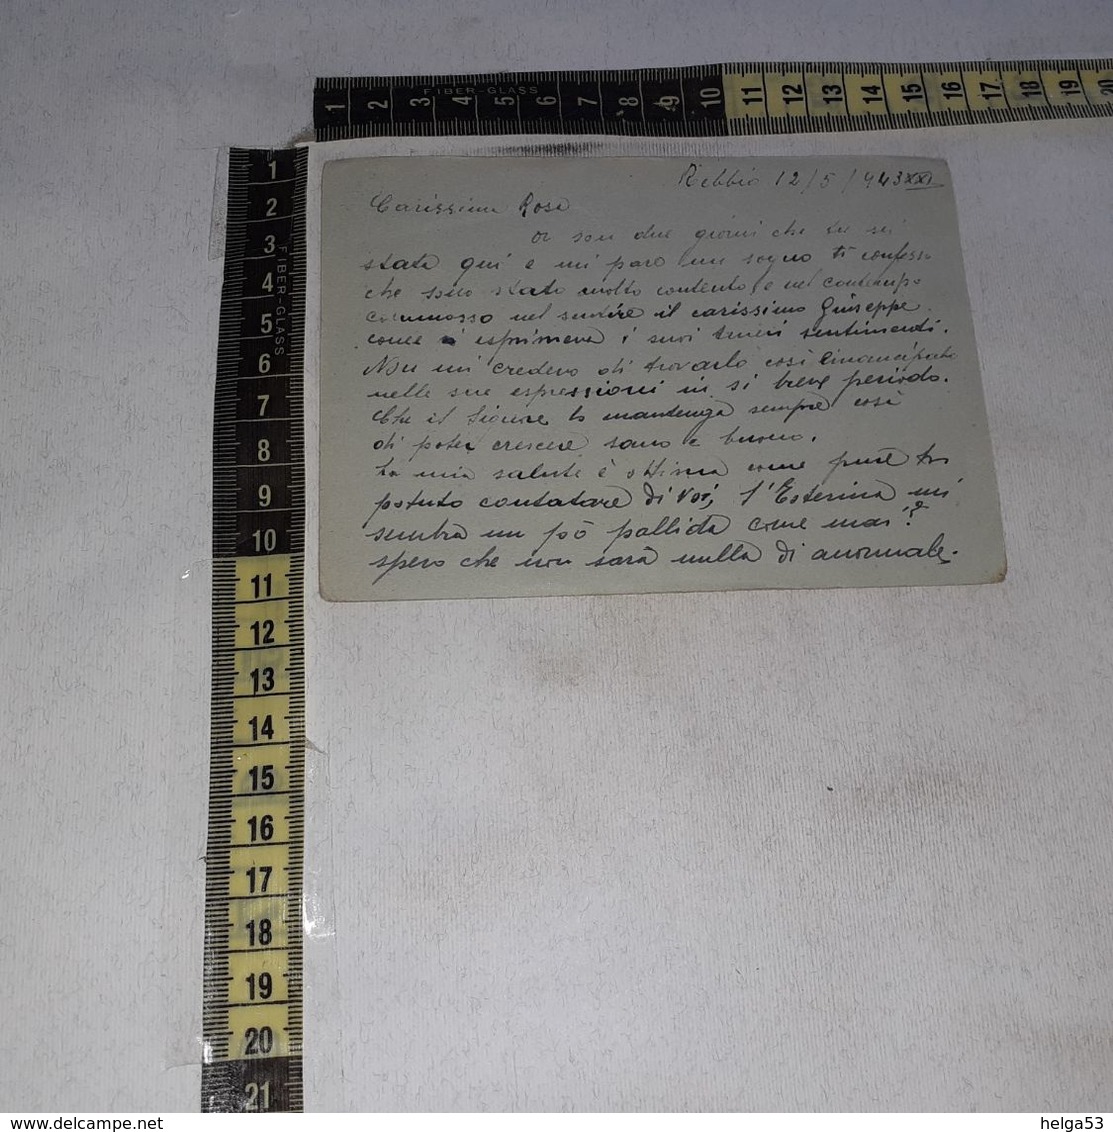 FIBER-GLASS
1 2 3 4 5 6 7 8 9 10 11 12 13 14 15 16 17 18 19 20
FIBER-GLASS
1
2
3
4
5
6
7
8
9
10
11
12
13
14
15
16
17
18
19
20
21
Rebbio 12/5/943 XXI
Carissima Rosa
or son due giorni che tu sei
stata qui e mi pare un sogno ti confesso
che sono stato molto contento e nel contempo
commosso nel sentire il carissimo Giuseppe
come esprimeva i suoi teneri sentimenti.
Non mi credevo di trovarlo così emancipato
nelle sue espressioni in si breve periodo.
Che il Signore lo mantenga sempre così
di poter crescere sano e buono.
La mia salute è ottima come pure hai
potuto contatare di voi, l'Esterina mi
sembra un pò pallida come mai?
spero che non sarà nulla di anormale.
helga53